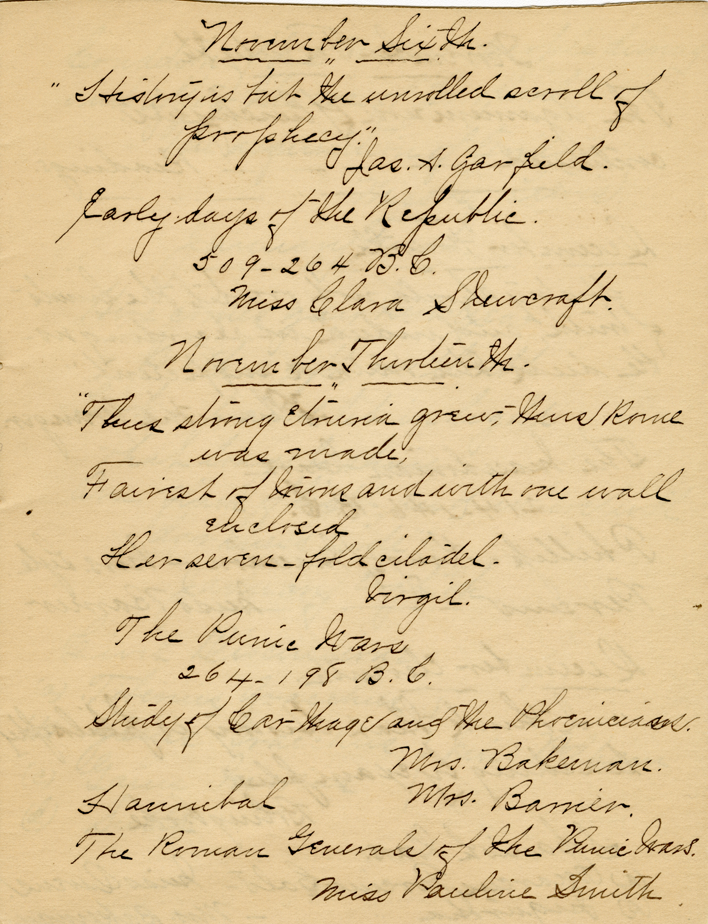 November Sixth.
"History is but the unrolled scroll of
prophecy."
Jas. A. Garfield.
Early days of the Republic.
509-264 B.C.
Miss Clara Shewcraft.
November Thirteenth.
"Thus strong Etruria grew, thus Rome
was made,
Fairest of towns and with one wall
enclosed
Her seven-fold citadel.
Virgil.
The Punic Wars
264-198 B.C.
Study of Carthage and the Phoenicians.
Mrs. Bakeman.
Hannibal Mrs. Barrier.
The Roman Generals of the Punic Wars.
Miss Pauline Smith.